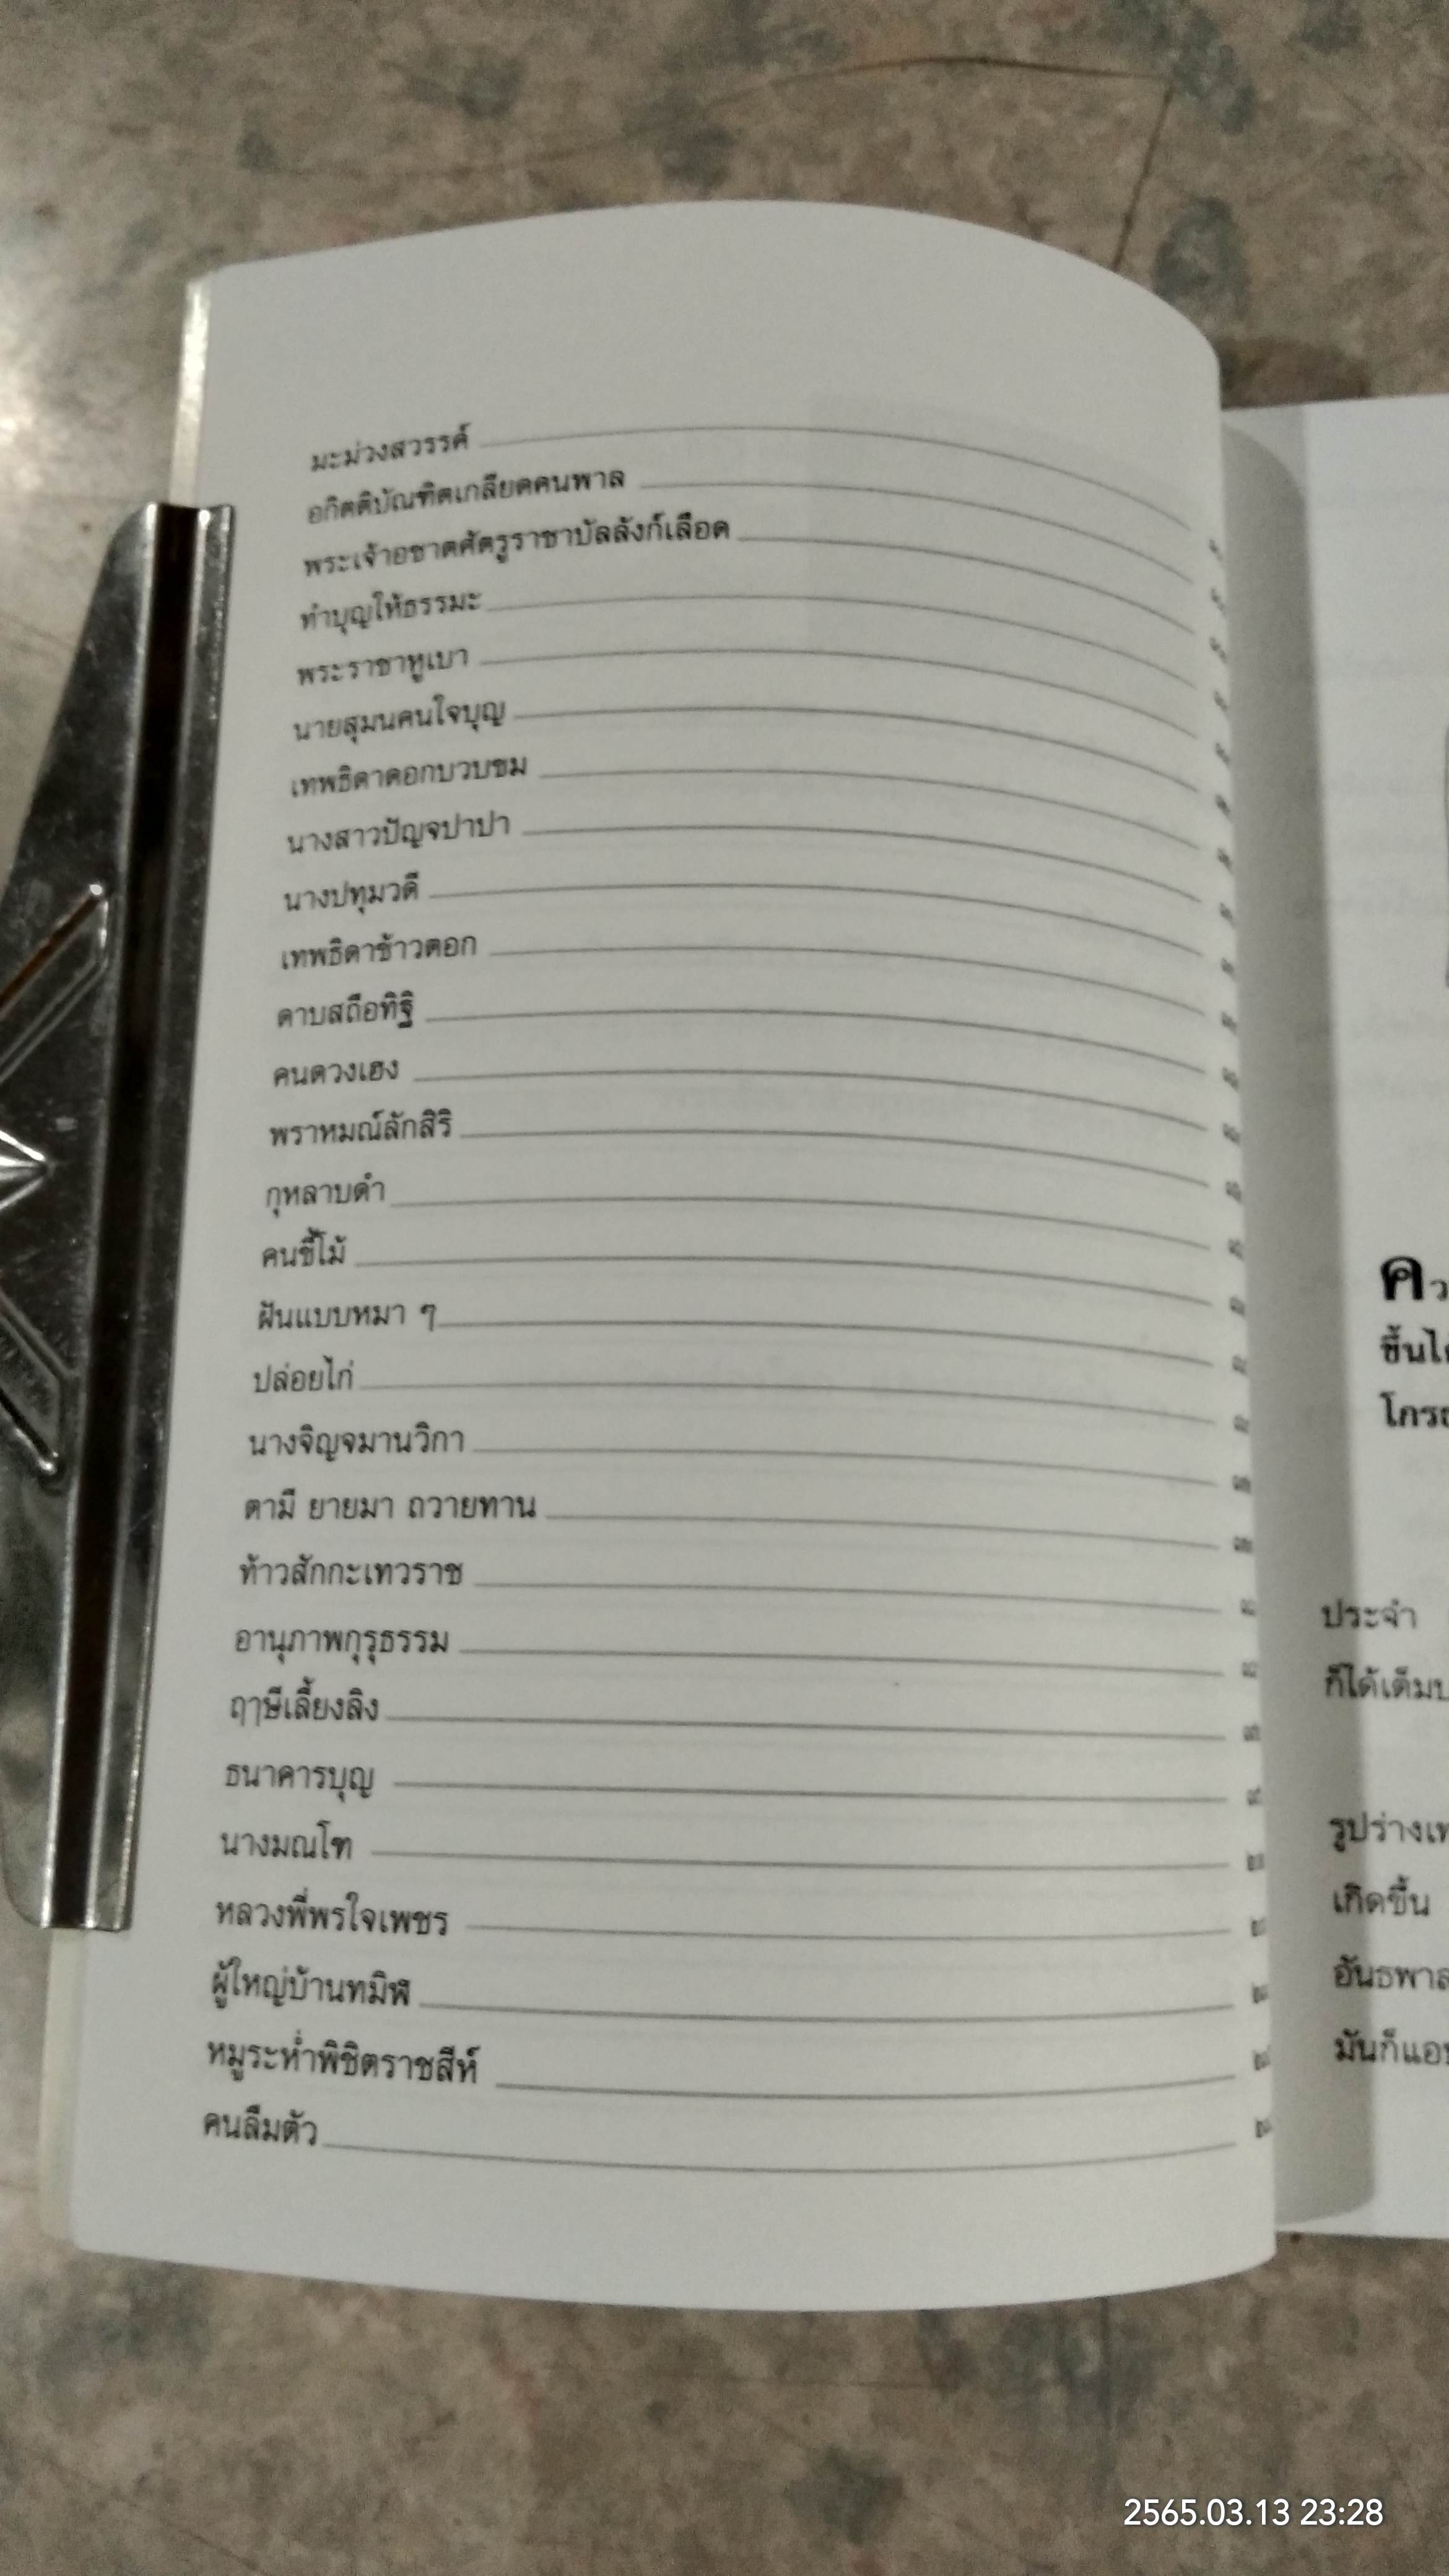 มะม่วงสวรรค์
อกิตติบัณฑิตเกลียดคนพาล
พระเจ้าอชาตศัตรูราชาบัลลังก์เลือด
ทำบุญให้ธรรมะ
พระราชาหูเบา
นายสุมนคนใจบุญ
เทพธิดาดอกบวบขม
นางสาวปัญจปาปา
นางปทุมวดี
เทพธิดาข้าวตอก
ดาบสถือทิฐิ
คนดวงเฮง
พราหมณ์ลักสิริ
กุหลาบดำ
คนขี้โม้
ฝันแบบหมา ๆ
ปล่อยไก่
นางจิญจมานวิกา
ตามี ยายมา ถวายทาน
ท้าวสักกะเทวราช
อานุภาพกุรุธรรม
ฤๅษีเลี้ยงลิง
ธนาคารบุญ
นางมณโฑ
หลวงพี่พรใจเพชร
ผู้ใหญ่บ้านทมิฬ
หมูระห่ำพิชิตราชสีห์
คนลืมตัว
ขึ้นได้
ประจำ
ก็ได้เต็ม
รูปร่าง
เกิดขึ้น
อันธพาล
มันก็แอบ
2565.03.13 23:28